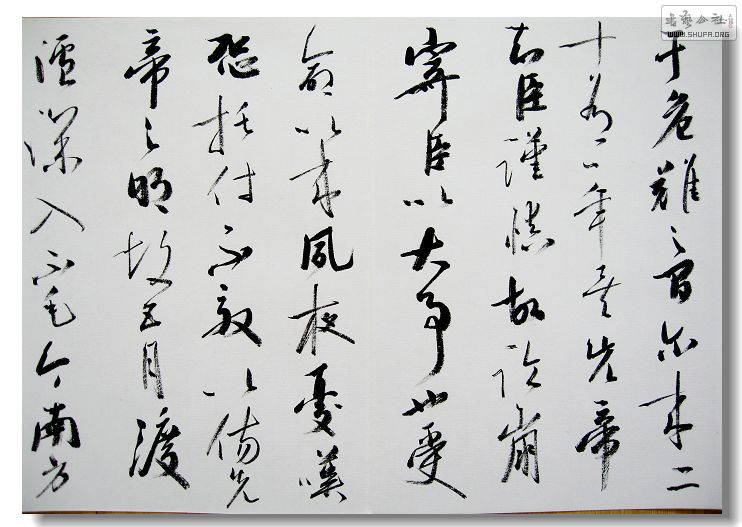 于危難之間尔来二
十有一年矣先帝
知臣謹慎故臨崩
寄臣以大事也受
命以来夙夜憂嘆
恐托付不效以傷先
帝之明故五月渡
瀘深入不毛今南方
書藝公社
WWW.SHUFA.ORG